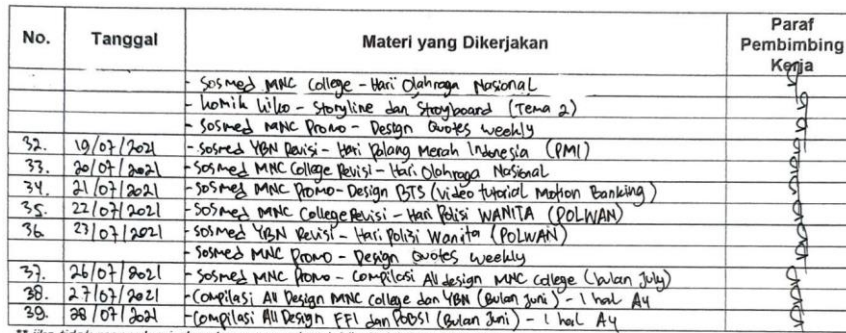 No. Tanggal Materi yang Dikerjakan Paraf Pembimbing Kerja
- Sosmed MNC College - Hari Olahraga Nasional
- Komik Kiko - Storyline dan Stroyboard (Tema 2)
- Sosmed MNC Promo - Design Quotes weekly
32. 19/07/2021 - Sosmed YBN Revisi - Hari Palang Merah Indonesia (PMI)
33. 20/07/2021 - Sosmed MNC College Revisi - Hari Olahraga Nasional
34. 21/07/2021 - Sosmed MNC Promo - Design BTS (video tutorial Motion Banking)
35. 22/07/2021 - Sosmed MNC College Revisi - Hari Polisi WANITA (POLWAN)
36 23/07/2021 - Sosmed YBN Revisi - Hari Polisi Wanita (POLWAN)
- Sosmed MNC Promo - Design Quotes weekly
37. 26/07/2021 - Sosmed MNC Promo - Compilasi All design MNC College (bulan July)
38. 27/07/2021 - Compilasi All Design MNC College dan YBN (Bulan Juni) - 1 hal A4
39. 28/07/2021 - Compilasi All Design FFI dan (Bulan Juni) - 1 hal A4